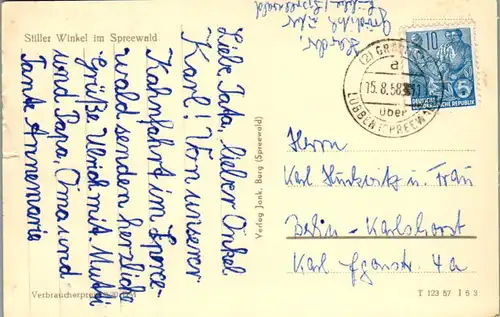 Stiller Winkel im Spreewald
Liebe Tata, lieber Onkel
Karl! Von unserer
Kahnfahrt im Spree-
wald senden herzliche
Grüße Ulrich mit Mutti
und Papa, Oma und
Tante Annemarie
Verlag Jank, Burg (Spreewald)
über
15.8.58
LÜBBEN (SPREEWALD)
10
DEUTSCHE
DEMOKRATISCHE REPUBLIK
Herrn
Karl u. Frau
Berlin - Karlshorst
Karl Egonstr. 4a
Verbraucherpreis
T 123 57 I 5 3